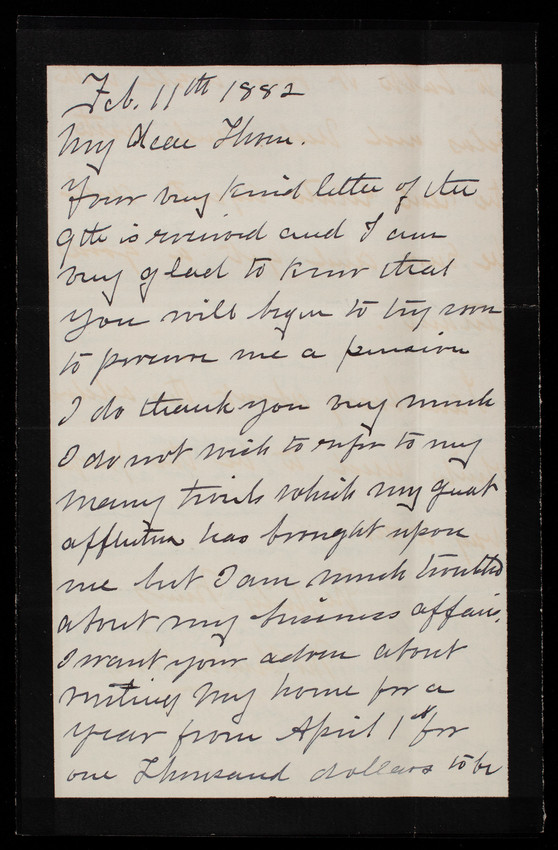 Feb. 11th 1882
My dear Thom.
Your very kind letter of the
9th is received and I am
very glad to know that
you will begin to try soon
to procure me a pension
I do thank you very much
I do not wish to refer to my
many trials which my great
affliction has brought upon
me but I am much troubled
about my business affairs.
I want your advice about
renting my home for a
year from April 1st for
one Thousand dollars to be